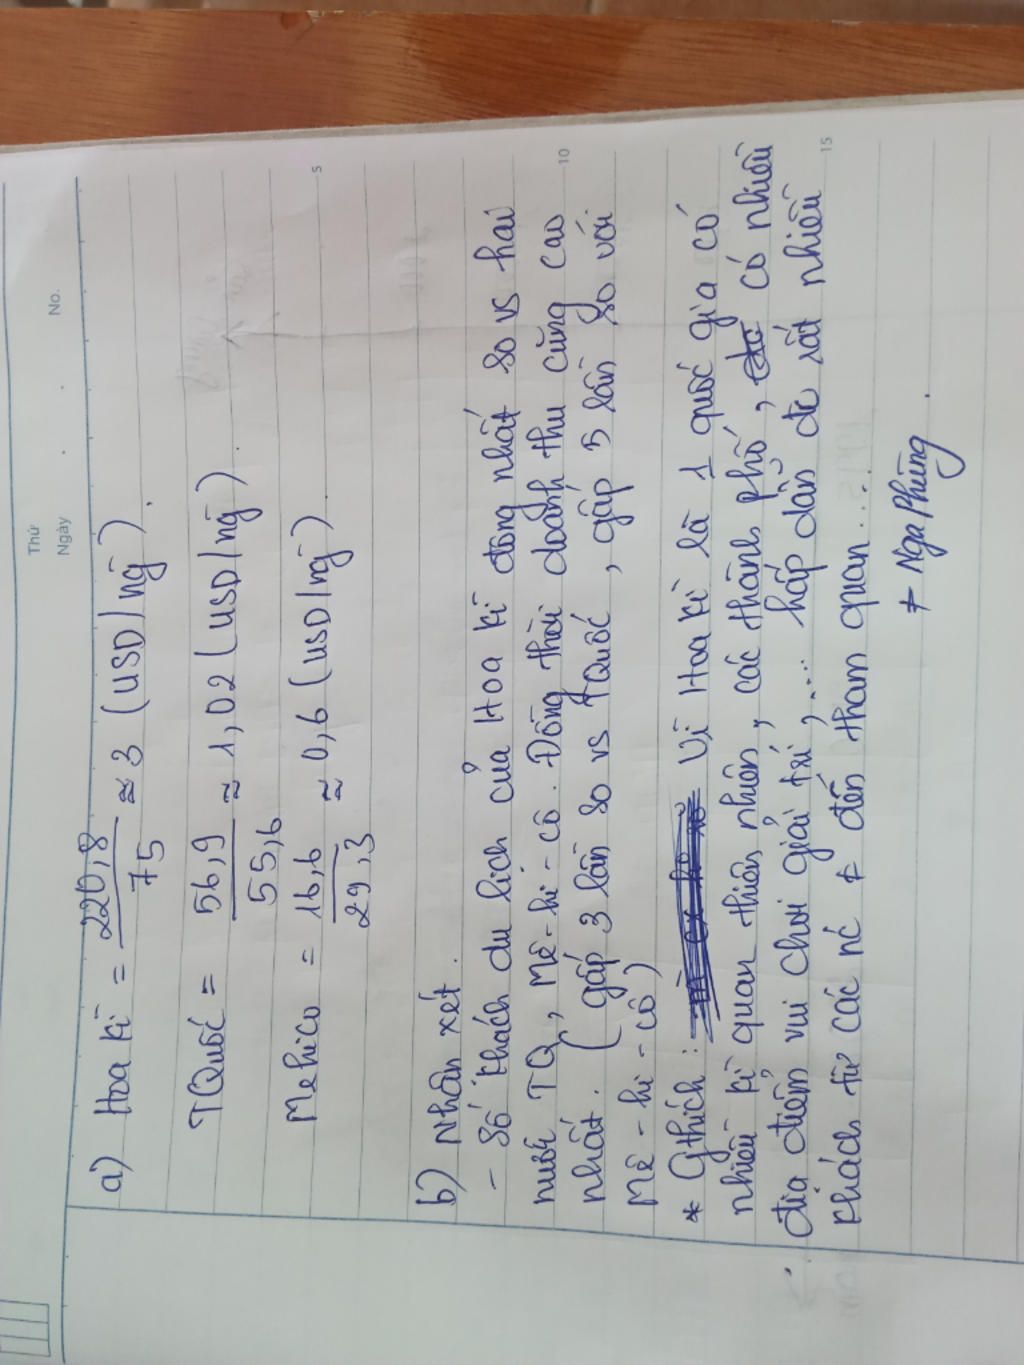 Thứ
Ngày . . No.
a) Hoa Kì = 220,8 / 75 ≈ 3 (USD/ng)
TQuốc = 56,9 / 55,6 ≈ 1,02 (USD/ng)
Mehico = 16,6 / 29,3 ≈ 0,6 (USD/ng)
5
b) Nhận xét.
- Số khách du lịch của Hoa Kì đông nhất so vs hai
nước TQ, Mê-hi-cô. Đồng thời doanh thu cũng cao
10
nhất. (gấp 3 lần so vs TQuốc, gấp 5 lần so với
Mê-hi-cô)
* Gthích: Vì Hoa Kì là 1 quốc gia có
nhiều kì quan thiên nhiên, các thành phố, có nhiều
địa điểm vui chơi giải trí,.... hấp dẫn đc rất nhiều
15
khách từ các nc đến tham quan...
Nga Phùng.